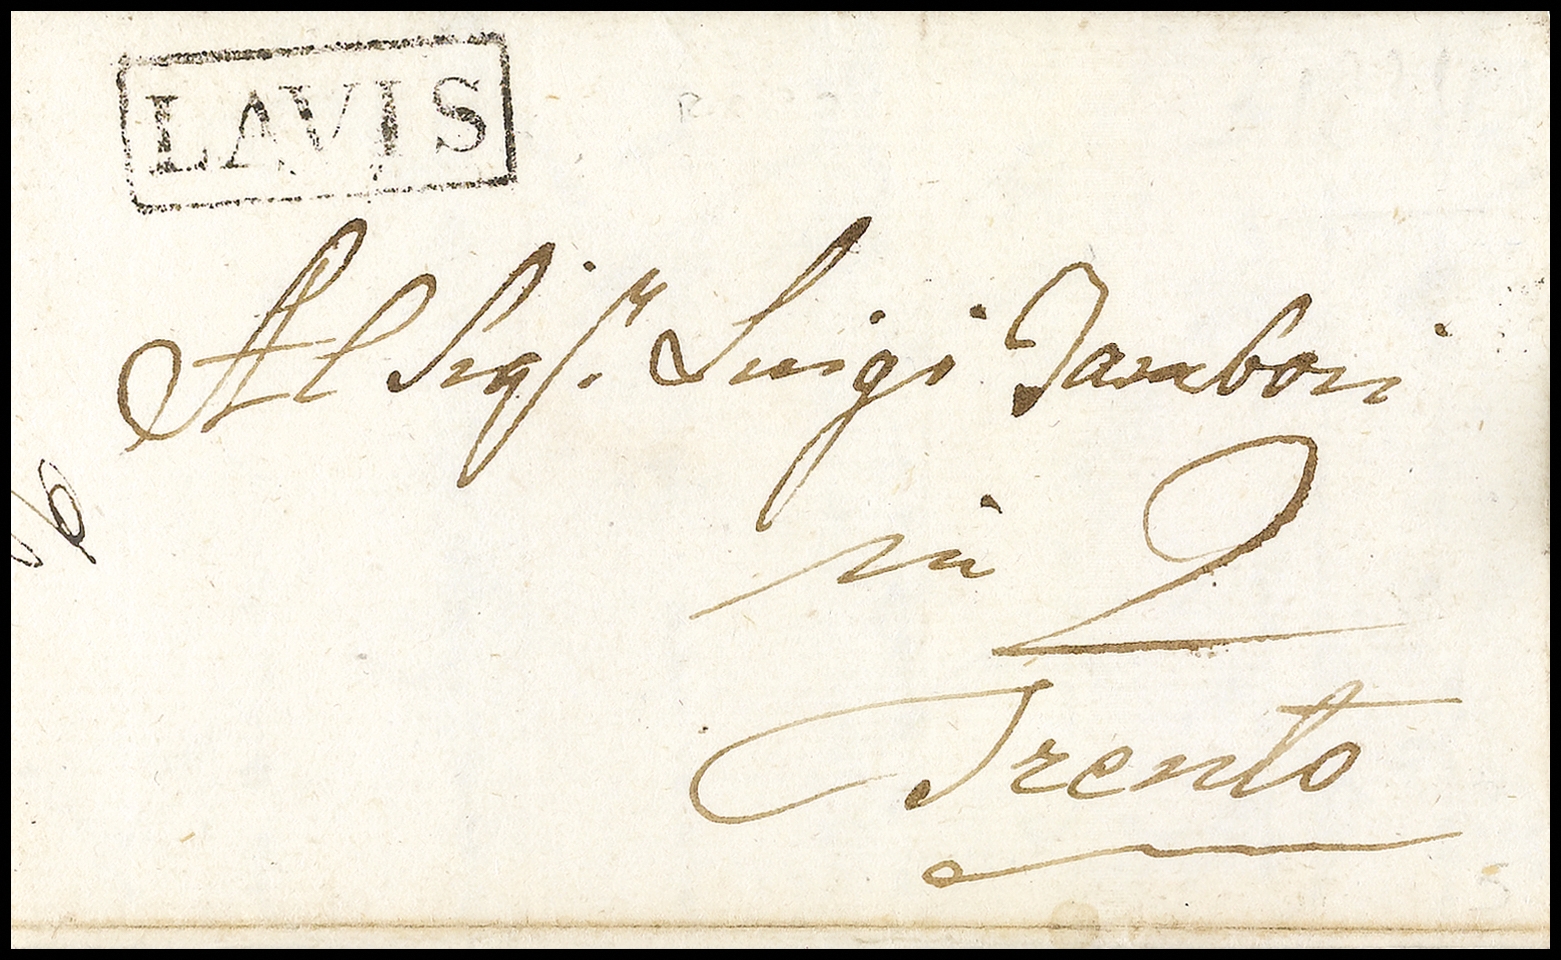 LAVIS
Al Sigr. Luigi Tamboni
in
Trento